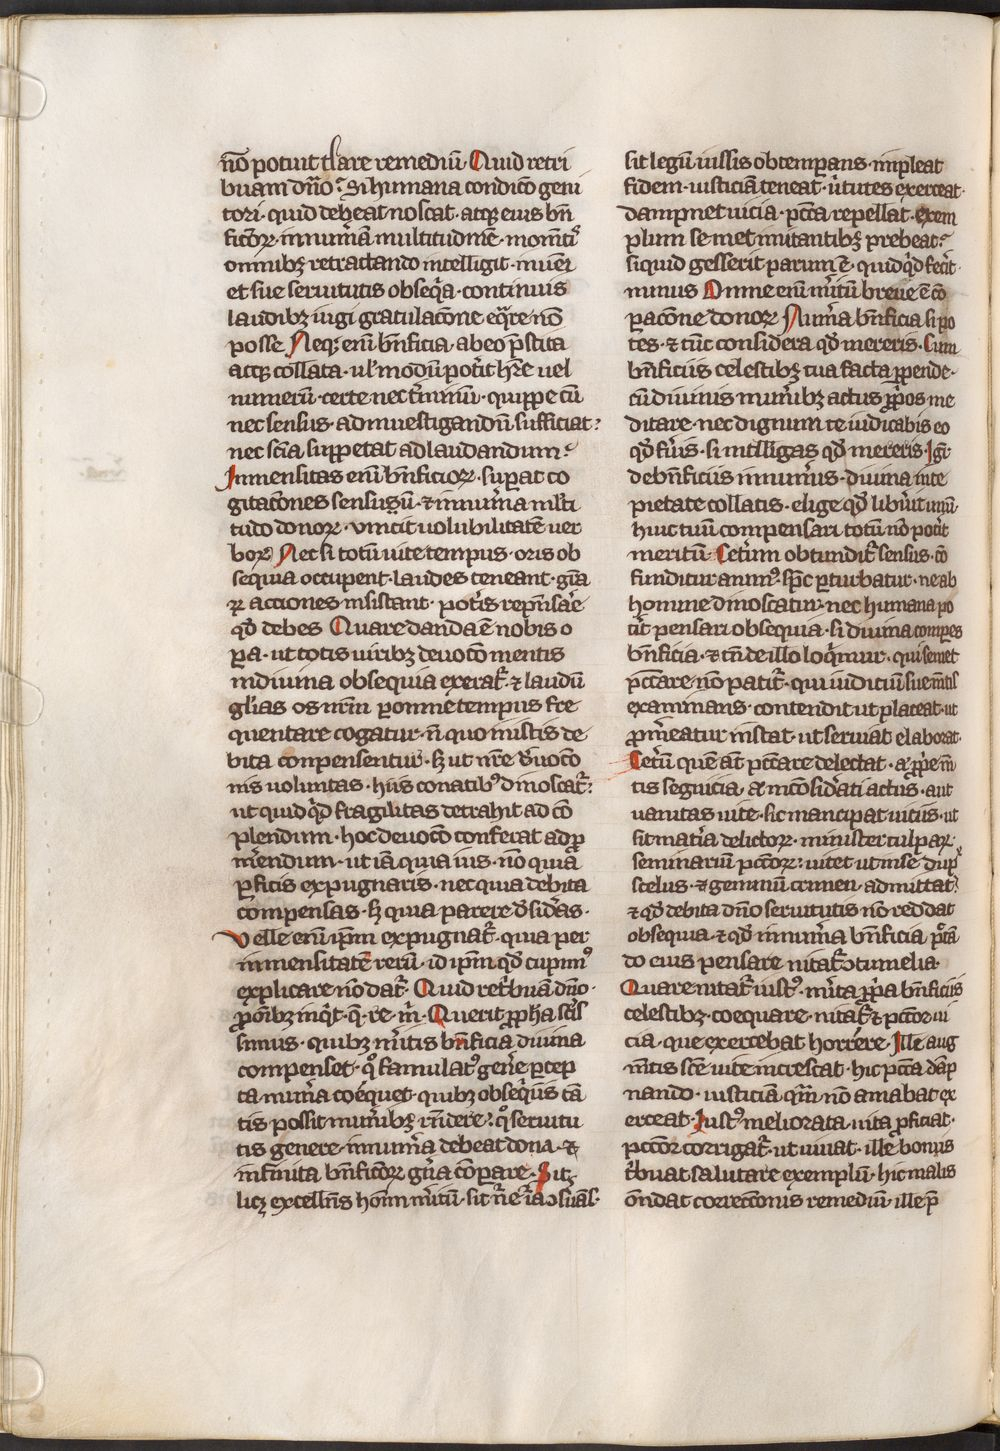 nō potuit dare remediū Quid retri
buam dn̄o? Si humana condicō geni
tori· quid debeat noscat· atq; eius bn̄
ficōꝝ· innum̄am multitudinē· mom̄tꝭ
omnibꝫ retractando intelligit·
et sue seruitutis obseq̄a· continuis
laudibꝫ iugi gratulacōne nō
posse Neqꝫ enī bn̄ficia, ab eo p̄stita
atqꝫ collata· uł modū pot̄it hr̄e uel
numerū· certe nec t̄minū· quippe cū
nec sensus· ad inuestigandū sufficiat?
nec scīa suppetat ad laudandum?
Inmensitas enī bn̄ficioꝝ· suꝑat co
gitatōnes sensuū· ⁊ innum̄a multi
tudo donoꝝ· uincit uolubilitatē uer
boꝝ Nec si totū uite tempus· oris ob
sequia occupent· laudes teneant· gr̄a
ꝝ acciones insistant· pot̄is rep̄nsare
qd̄ debes Quare danda ē nobis o
ꝑa· ut totis uiribꝫ deuocō mentis
in diuina obsequia exerat̄· ⁊ laudū
gl̄ias os nr̄m ꝑ omne tempus fre
quentare cogatur· n̄ quo in istis de
bita conpensentur· sꝫ ut nr̄e d̄uocō
nis uoluntas· hiis conatibꝰ dinoscat̄:
ut quid qd̄ fragilitas detrahit ad cō
plendum· hoc deuocō conferat ad ꝓ
m̄endum· ut iā quia uis· nō quia
ꝑficis expugnaris· nec quia debita
compensas· sꝫ quia parere d̄sid̄as·
Velle enī ip̄m expugnat̄· quia per
inmensitatē rerū· id ip̄m qd̄ cupimꝰ
explicare nō dat̄· Quid ret̄buā dn̄o·
ꝓ oībꝫ inq̄t· q̄· re· m̄· Querit ꝓpha sc̄is
simus· quibꝫ m̄itis bn̄ficia diuina
compenset· qͦ famulatꝰ gen̄e ꝑceꝑ
ta mun̄a coequet· quibꝫ obseq̄is tā
tis possit mun̄ibꝫ rn̄dere? qͦ seruitu
tis genere· innum̄a debeat dona· ⁊
infinita bn̄ficōꝝ gr̄a cōpare· Sit
licꝫ excellēs hom̄ m̄itū· sit
sit legū iussis obtemꝑans· impleat
fidem· iusticiā teneat· ūtutes exerceat·
dampnet uicia· pctā repellat· exem
plum semet imitantibꝫ prebeat?
siquid gesserit parum ē· quid qd̄ fec̄it·
minus Omne enī m̄itū breue ē cō
ꝑacōne donoꝝ Num̄a bn̄ficia si po
tes· ⁊ tūc considera qd̄ mereris· Cum
bn̄ficiis celestibꝫ tua facta ꝑpende·
cū diuinis mun̄ibꝫ actus ꝓp̄os me
ditare· nec dignum te iudicabis eo
qd̄ fu̅is· si intelligas qd̄ mereris· Igr̄
de bn̄ficiis innum̄is· diuina in te
pietate collatis· elige qd̄ libu̅it unū·
huic tuū compensari totū nō pot̄it
meritū Cet̄um obtundit̄ sensus· cō
funditur animꝰ· spc̄ ꝑturbatur· ne ab
homine dinoscatur· nec humana po
t̄it pensari obsequia· si diuina compes
bn̄ficia· ⁊ tn̄ de illo loq̄mur· qui semet
pctāre nō patit̄· qui iudiciū sue m̄tis
examinans· contendit ut placeat· ut
ꝓm̄eatur instat· ut seruiat elaborat·
Cet̄ū quē at̄ pctāre delectat· ⁊ ꝓp̄e m̄
tis segnicia, ⁊ incōsid̄ati actus, aut
uanitas uite· sic mancipat uiciis· ut
sit mat̄ia delictoꝝ· minister culpaꝝ·
seminariū pctōꝝ: uitet ut in se dup̄
scelus· ⁊ geminū crimen· admittat?
⁊ qd̄ debita dn̄o seruitutis nō reddat
obsequia· ⁊ qd̄ innum̄a bn̄ficia
do eius pensare nitat̄ ɔtumelia·
Quare nitat̄ iustꝰ· m̄ita ꝓp̄a bn̄ficiis
celestibꝫ· coequare· nitat̄ ⁊ pctōr ui
cia· que exercebat horrere· Ille aug
m̄tis sc̄e uite increscat· hic pctā dāp
nando· iusticiā qm̄ nō amabat ex
erceat· Iustꝰ meliorata uita ꝓficiat·
pctōr corrigat̄· ut uiuat· ille bonis
t̄buat salutare exemplū· hic malis
on̄dat correcconis remediū· ille p̄